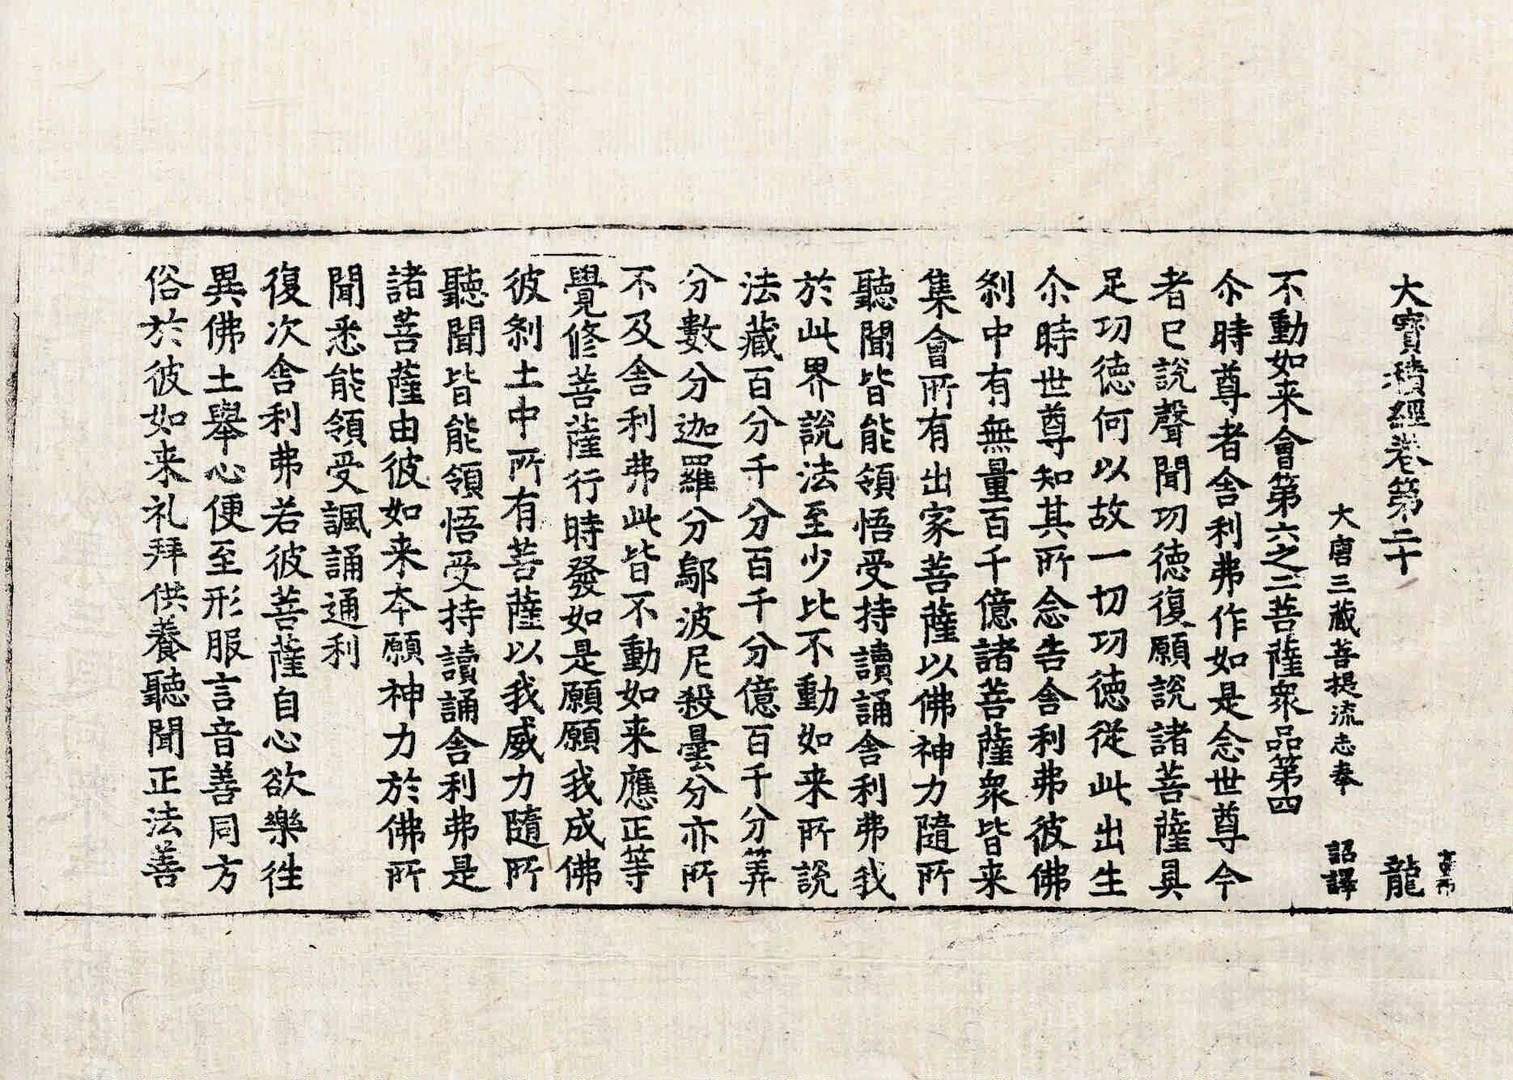 大寶積經卷第二十 龍
大唐三藏菩提流志奉 詔譯
不動如来會第六之二菩薩衆品第四
尒時尊者舎利弗作如是念世尊今
者已說聲聞功徳復願說諸菩薩具
足功徳何以故一切功徳從此出生
尒時世尊知其所念告舎利弗彼佛
刹中有無量百千億諸菩薩衆皆来
集會所有出家菩薩以佛神力隨所
聽聞皆能領悟受持讀誦舎利弗我
於此界說法至少比不動如来所說
法蔵百分千分百千分億百千分筭
分數分迦羅分鄔波尼殺曇分亦所
不及舎利弗此皆不動如来應正等
覺修菩薩行時發如是願願我成佛
彼刹土中所有菩薩以我威力隨所
聽聞皆能領悟受持讀誦舎利弗是
諸菩薩由彼如来夲願神力於佛所
聞悉能領受諷誦通利
復次舎利弗若彼菩薩自心欲樂徃
異佛土舉心便至形服言音善同方
俗於彼如来礼拜供養聽聞正法善